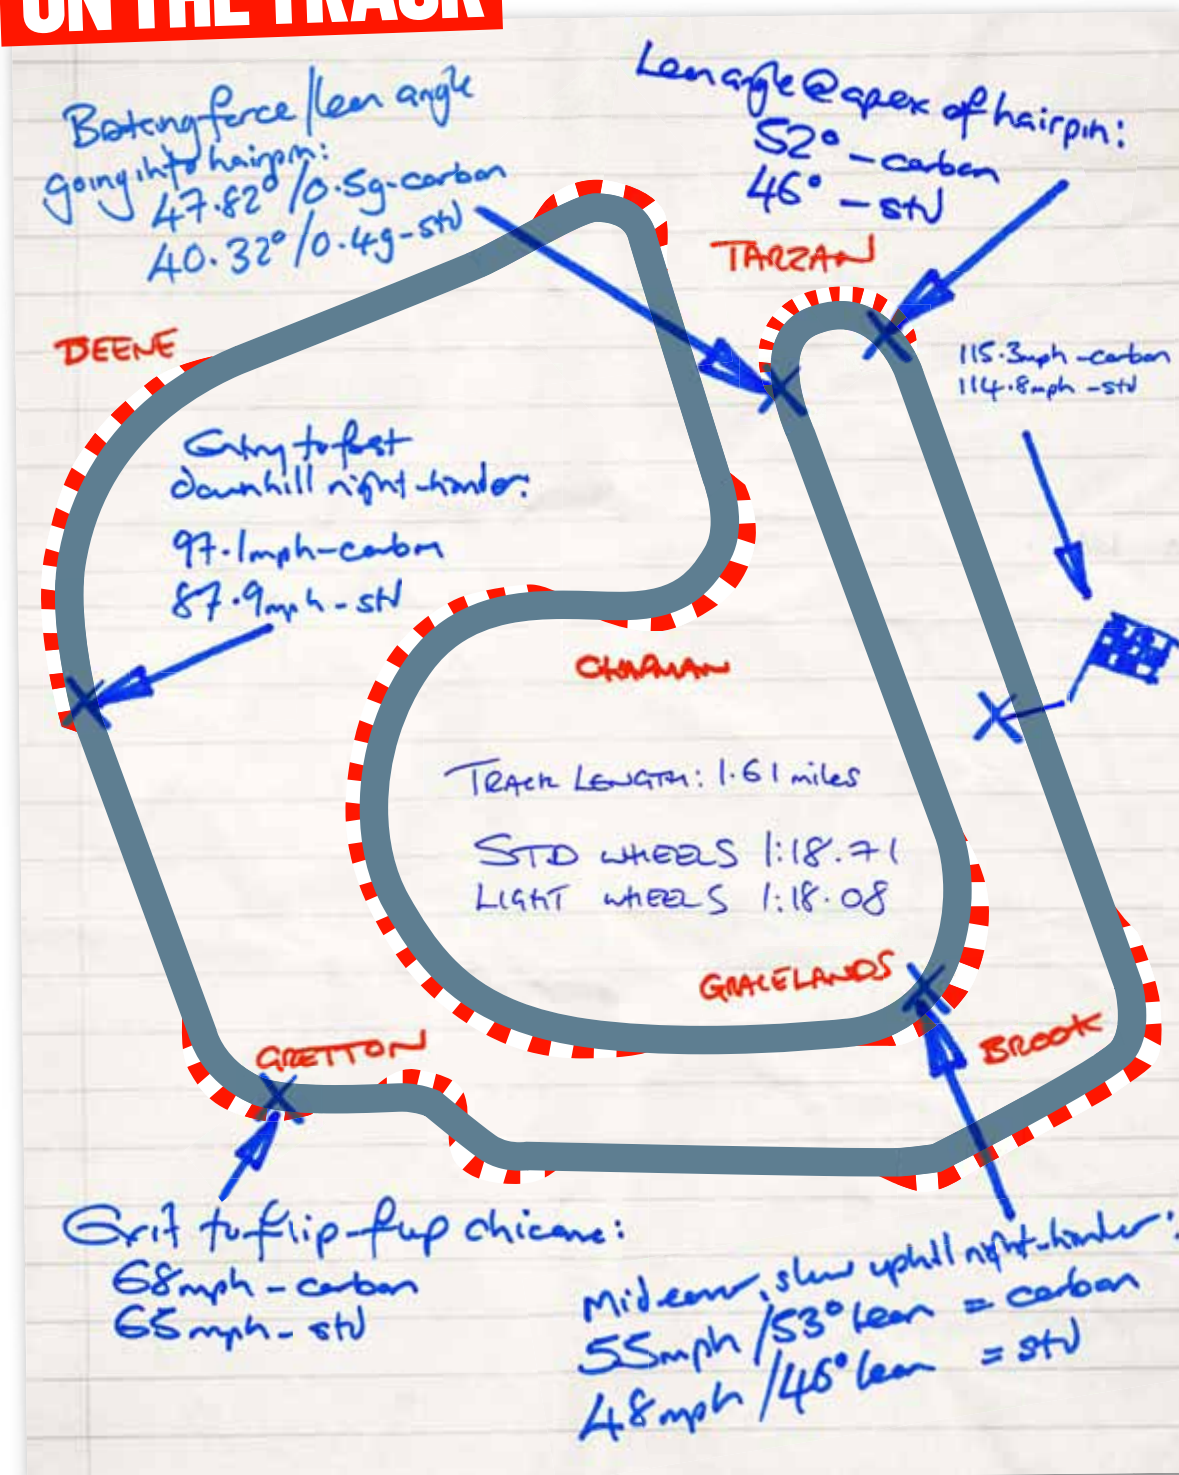 ON THE TRACK
Braking force/lean angle
going into hairpin:
47.82°/0.5g-carbon
40.32°/0.4g-std
Lean angle @ apex of hairpin:
52° - carbon
46° - std
TARZAN
115.3mph - carbon
114.8mph - std
DEENE
Entry to fast
downhill right-hander:
97.1mph - carbon
87.9mph - std
CHAPMAN
TRACK LENGTH: 1.61 miles
STD WHEELS 1:18.71
LIGHT WHEELS 1:18.08
GRACELANDS
BROOK
GRETTON
Exit to flip-flop chicane:
68mph - carbon
65mph - std
Mid corner, slow uphill right-hander:
55mph/53° lean = carbon
48mph/46° lean = std